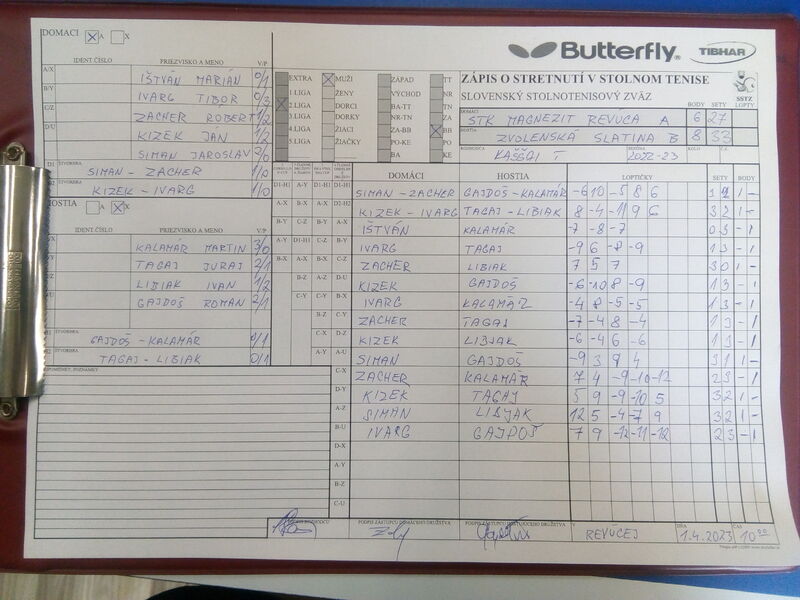 DOMÁCI A X
Butterfly TIBHAR
IDENT ČÍSLO PRIEZVISKO A MENO V/P
A/X IŠTVÁN MARIÁN 0/1
B/Y IVARG TIBOR 0/3
C/Z ZACHER ROBERT 1/2
KIZEK JÁN 1/2
SIMAN JAROSLAV 2/0
D1 ŠTVORHRA SIMAN - ZACHER 1/0
KIZEK - IVARG 1/0
HOSTIA A X
IDENT.ČÍSLO PRIEZVISKO A MENO V/P
KALAMÁR MARTIN 3/0
TAGAJ JURAJ 2/1
LIBIAK IVAN 1/2
GAJDOŠ ROMAN 2/1
ŠTVORHRA GAJDOŠ - KALAMÁR 0/1
ŠTVORHRA TAGAJ - LIBIAK 0/1
EXTRA MUŽI ZÁPAD TT
1 LIGA ŽENY VÝCHOD NR
2 LIGA DORCI BA-TT TN
3 LIGA DORKY NR-TN ZA
4.LIGA ŽIACI ZA-BB BB
5.LIGA ŽIAČKY PO-KE PO
BA KE
ZÁPIS O STRETNUTÍ V STOLNOM TENISE
SLOVENSKÝ STOLNOTENISOVÝ ZVÄZ SSTZ
DOMÁCI BODY SETY LOPTY
STK MAGNEZIT REVÚCA A 6 27
HOSTIA ZVOLENSKÁ SLATINA B 8 33
ROZHODCA SEZÓNA 2022-23 KOLO
DOMÁCI HOSTIA LOPTIČKY SETY BODY
D1-H1 SIMAN - ZACHER GAJDOŠ - KALAMÁR -6 10 -5 8 6 1 -
D2-H2 KIZEK - IVARG TAGAJ - LIBIAK 8 -4 -11 9 6 3 2 1 -
A-X IŠTVÁN KALAMÁR -7 -8 -7 0 3 - 1
B-Y IVARG TAGAJ -9 6 -8 -9 1 3 - 1
C-Z ZACHER LIBIAK 7 5 7 3 0 1 -
D-U KIZEK GAJDOŠ -6 -10 8 -9 1 3 - 1
B-X IVARG KALAMÁR -4 8 -5 -5 1 3 - 1
C-Y ZACHER TAGAJ -7 -4 8 -4 1 3 - 1
D-Z KIZEK LIBJAK -6 -4 6 -6 1 3 - 1
A-U SIMAN GAJDOŠ -9 3 9 4 3 1 1 -
C-X ZACHER KALAMÁR 7 4 -9 -10 -12 2 3 - 1
D-Y KIZEK TAGAJ 5 9 -9 -10 5 3 2 1 -
A-Z SIMAN LIBJAK 12 5 -4 -7 9 3 2 1 -
B-U IVARG GAJDOŠ 7 9 -12 -11 -12 2 3 - 1
D-X
A-Y
B-Z
C-U
PRIPOMIENKY, POZNÁMKY
PODPIS ZÁSTUPCU DOMÁCEHO DRUŽSTVA
PODPIS ZÁSTUPCU HOSŤUJÚCEHO DRUŽSTVA
V REVÚCEJ DŇA 1.4.2023 ČAS 10 00